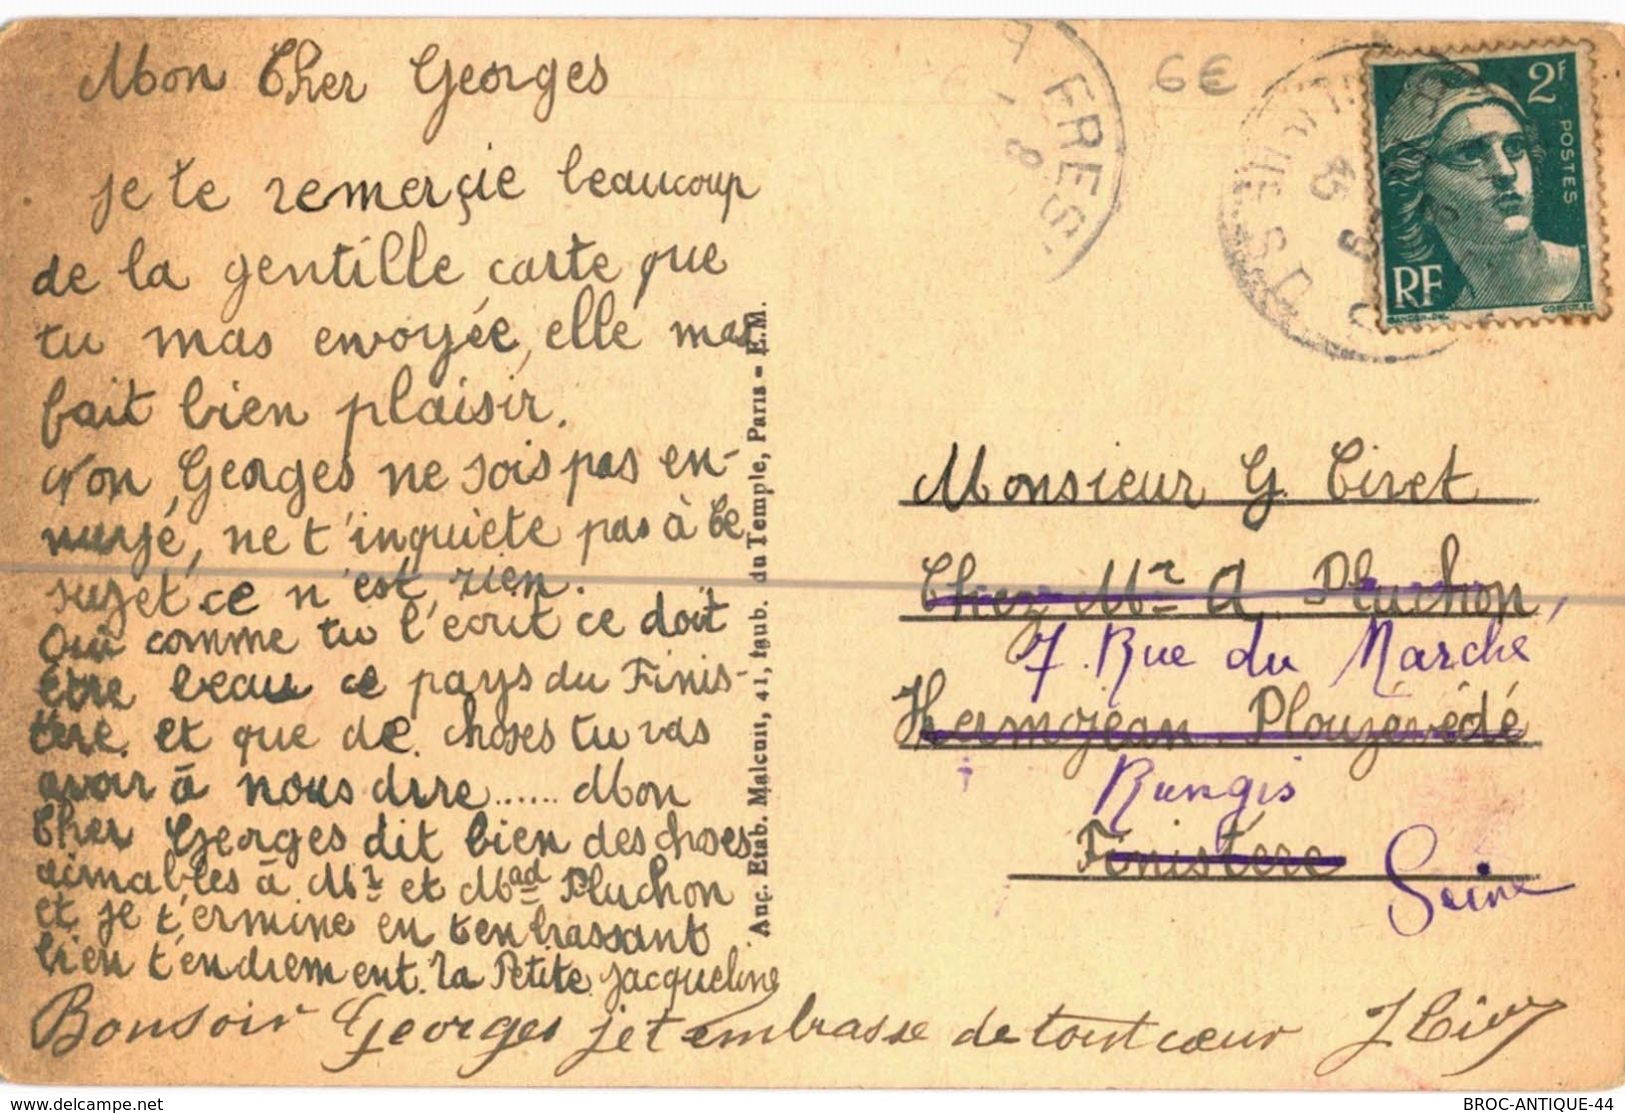 Mon Cher Georges
je te remerçie beaucoup
de la gentille carte que
tu mas envoyée, elle mas
fait bien plaisir.
Non, Georges ne sois pas en-
nuyé, ne t'inquiète pas à ce
sujet. ce n'est, rien.
Oui comme tu l'ecrit ce doit
être beau ce pays du Finis-
tère. et que de choses tu vas
avoir à nous dire...... Mon
Cher Georges dit bien des choses
aimables à Mr et Mad Pluchon
et je t'ermine en t'enbrassant
bien t'endrement. ta Petite Jacqueline
Bonsoir Georges je t'embrasse de tout cœur
Anc. Etab. Malcuit, 41, fgub. du Temple, Paris - E.M.
FRES
8
6€
2F
POSTES
RF
Monsieur G. Civet
Chez Mr A. Pluchon,
7. Rue du Marché
Kermojean. Plouzévédé
Rungis
Finistère
Seine
delcampe.net
BROC-ANTIQUE-44